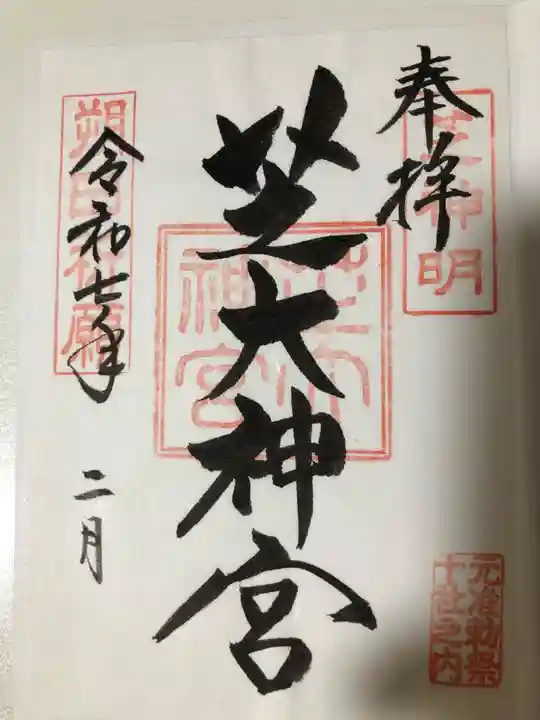 奉拝
芝神明
芝大神宮
芝大神宮
令和七年
二月
朔日祈願
元准勅祭
十社之六